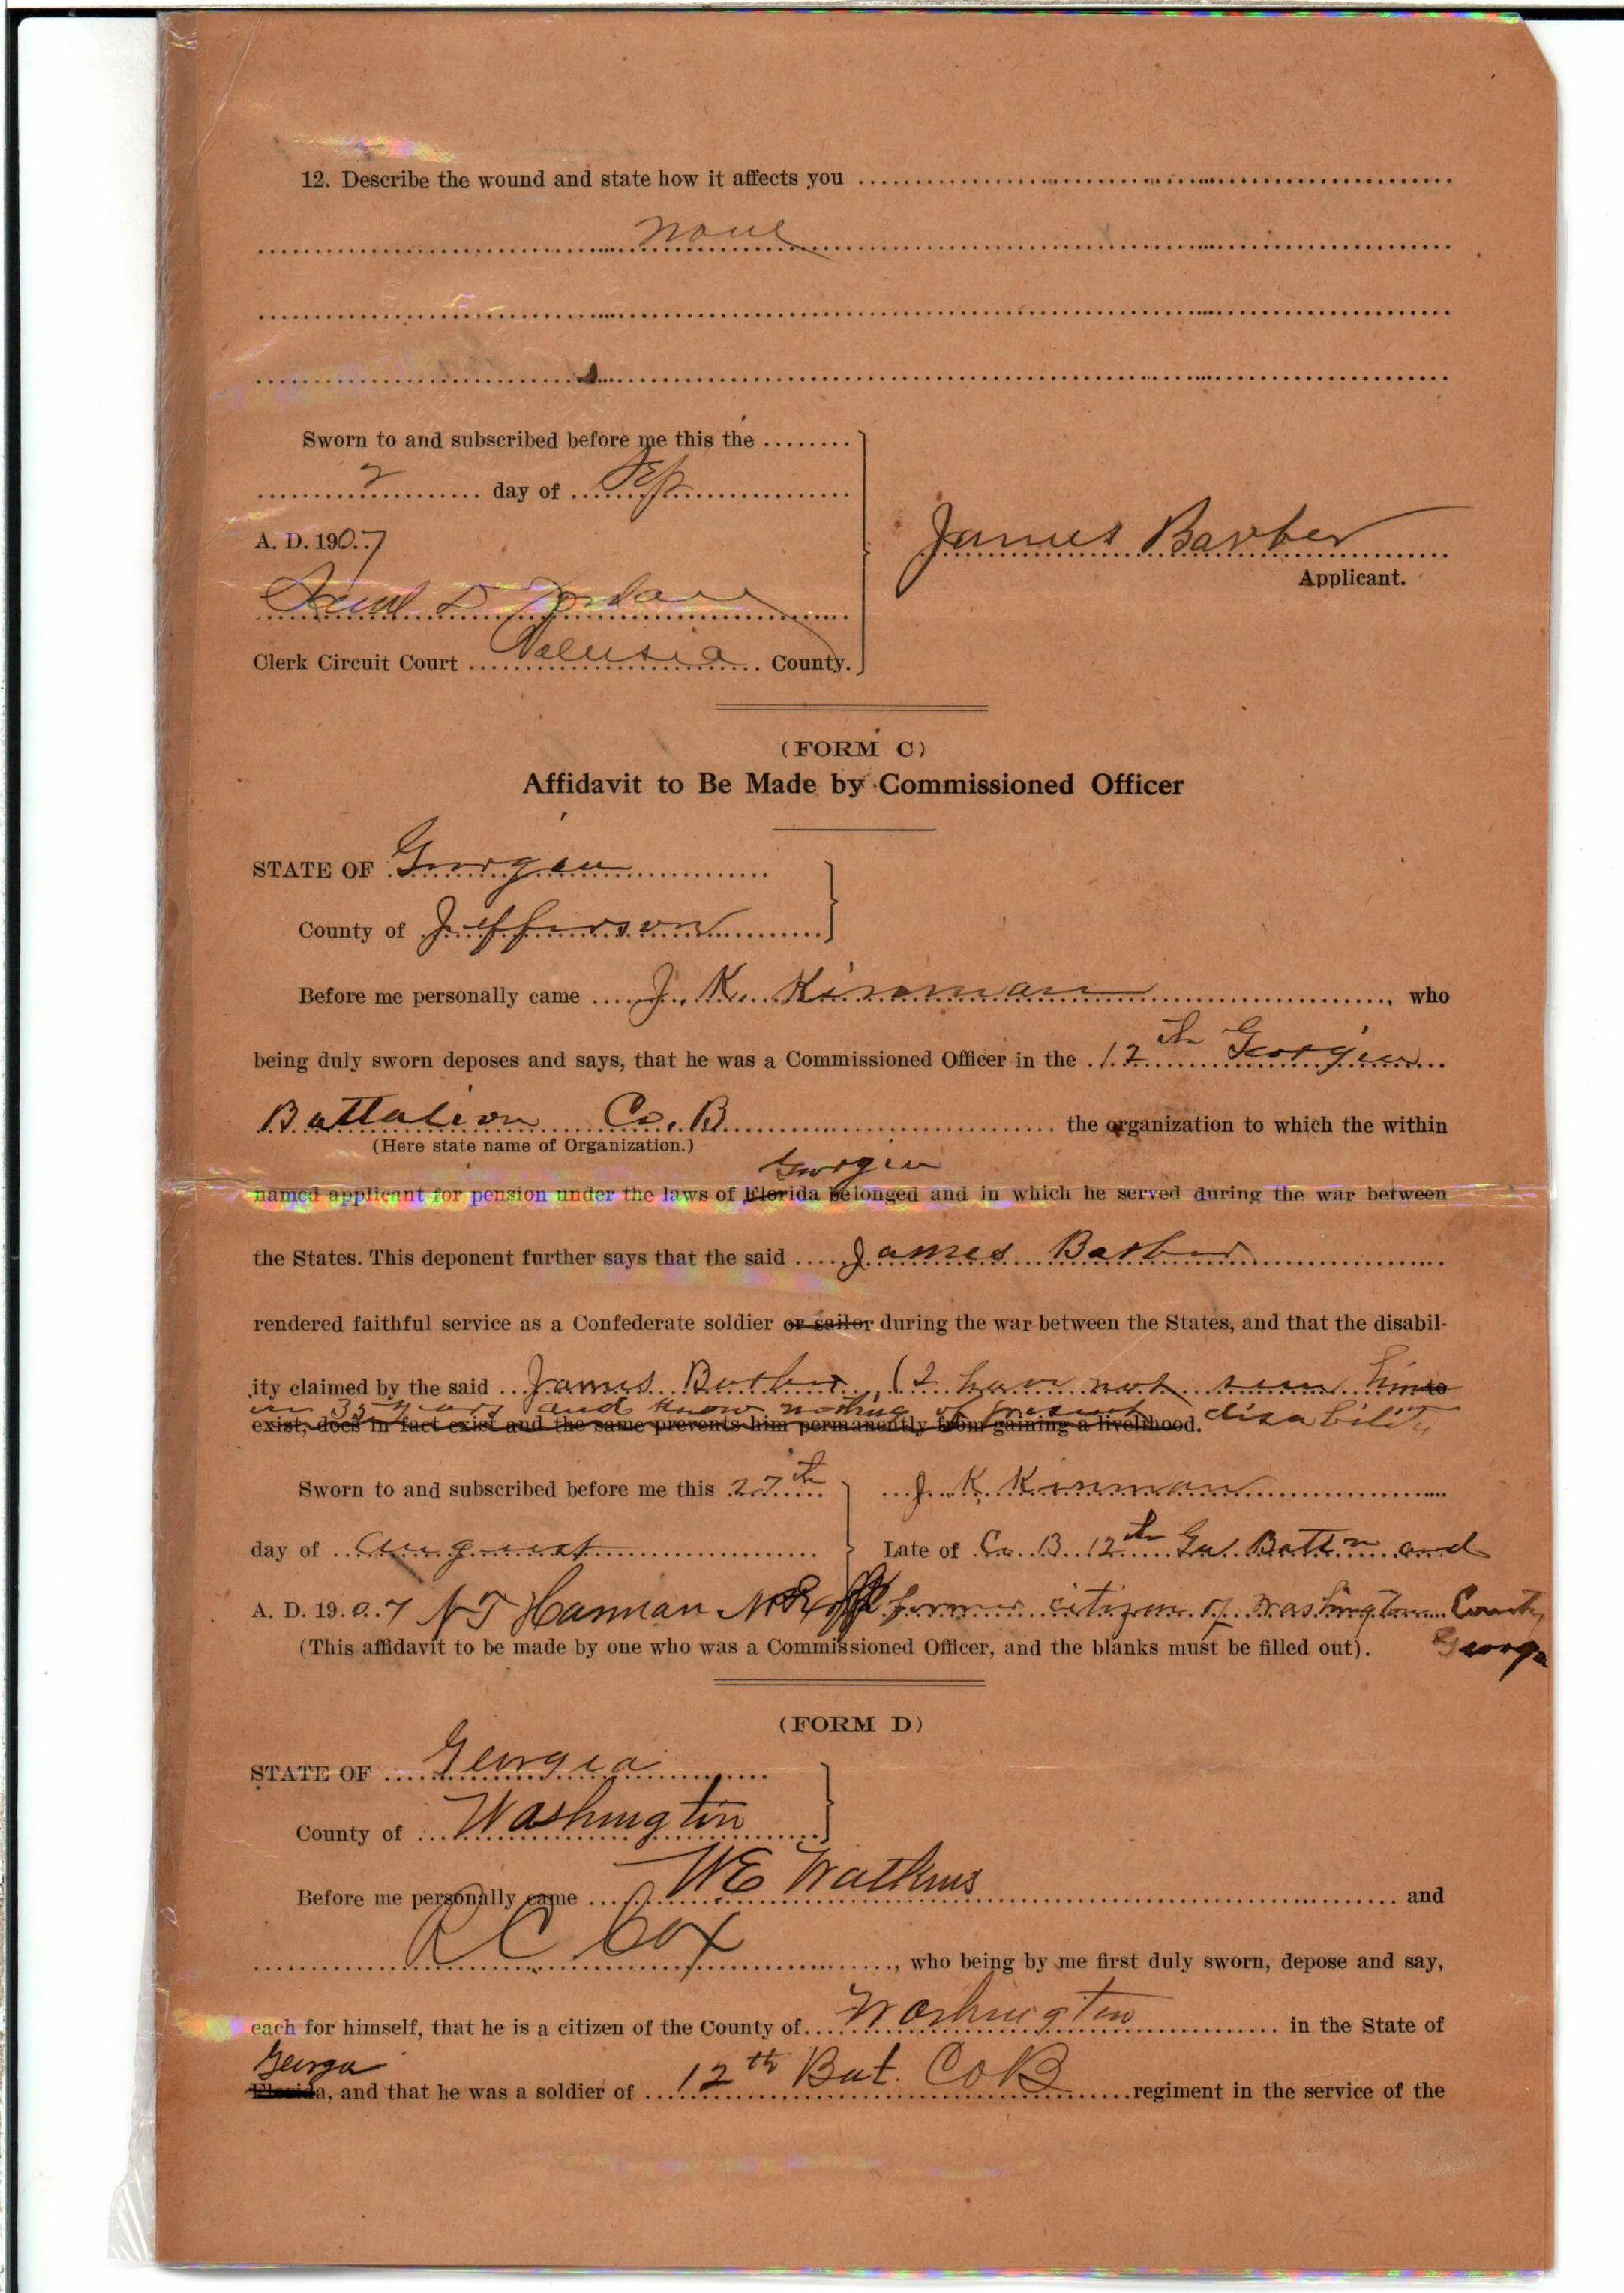 12. Describe the wound and state how it affects you
None
Sworn to and subscribed before me this the
2 day of Sep
A. D. 1907
Saml D Jordan
Clerk Circuit Court Volusia County.
James Barber
Applicant.
(FORM C)
Affidavit to Be Made by Commissioned Officer
STATE OF Georgia
County of Jefferson
Before me personally came J. K. Kinman, who
being duly sworn deposes and says, that he was a Commissioned Officer in the 12th Georgia
Battalion Co. B the organization to which the within
(Here state name of Organization.)
Georgia
named applicant for pension under the laws of Florida belonged and in which he served during the war between
the States. This deponent further says that the said James Barber
rendered faithful service as a Confederate soldier or sailor during the war between the States, and that the disabil-
ity claimed by the said James Barber (I have not seen him to
in 35 years and know nothing of present disability
exist, does in fact exist and the same prevents him permanently from gaining a livelihood.
Sworn to and subscribed before me this 27th
J. K. Kinman
day of August
Late of Co. B. 12th Ga. Battn and
A. D. 1907 N T Hannah former citizen of Washington County
Georga
(This affidavit to be made by one who was a Commissioned Officer, and the blanks must be filled out).
(FORM D)
STATE OF Georgia
County of Washington
Before me personally came W E Watkins and
R C Cox, who being by me first duly sworn, depose and say,
each for himself, that he is a citizen of the County of Washington in the State of
Georga
Florida, and that he was a soldier of 12th Bat. Co B regiment in the service of the